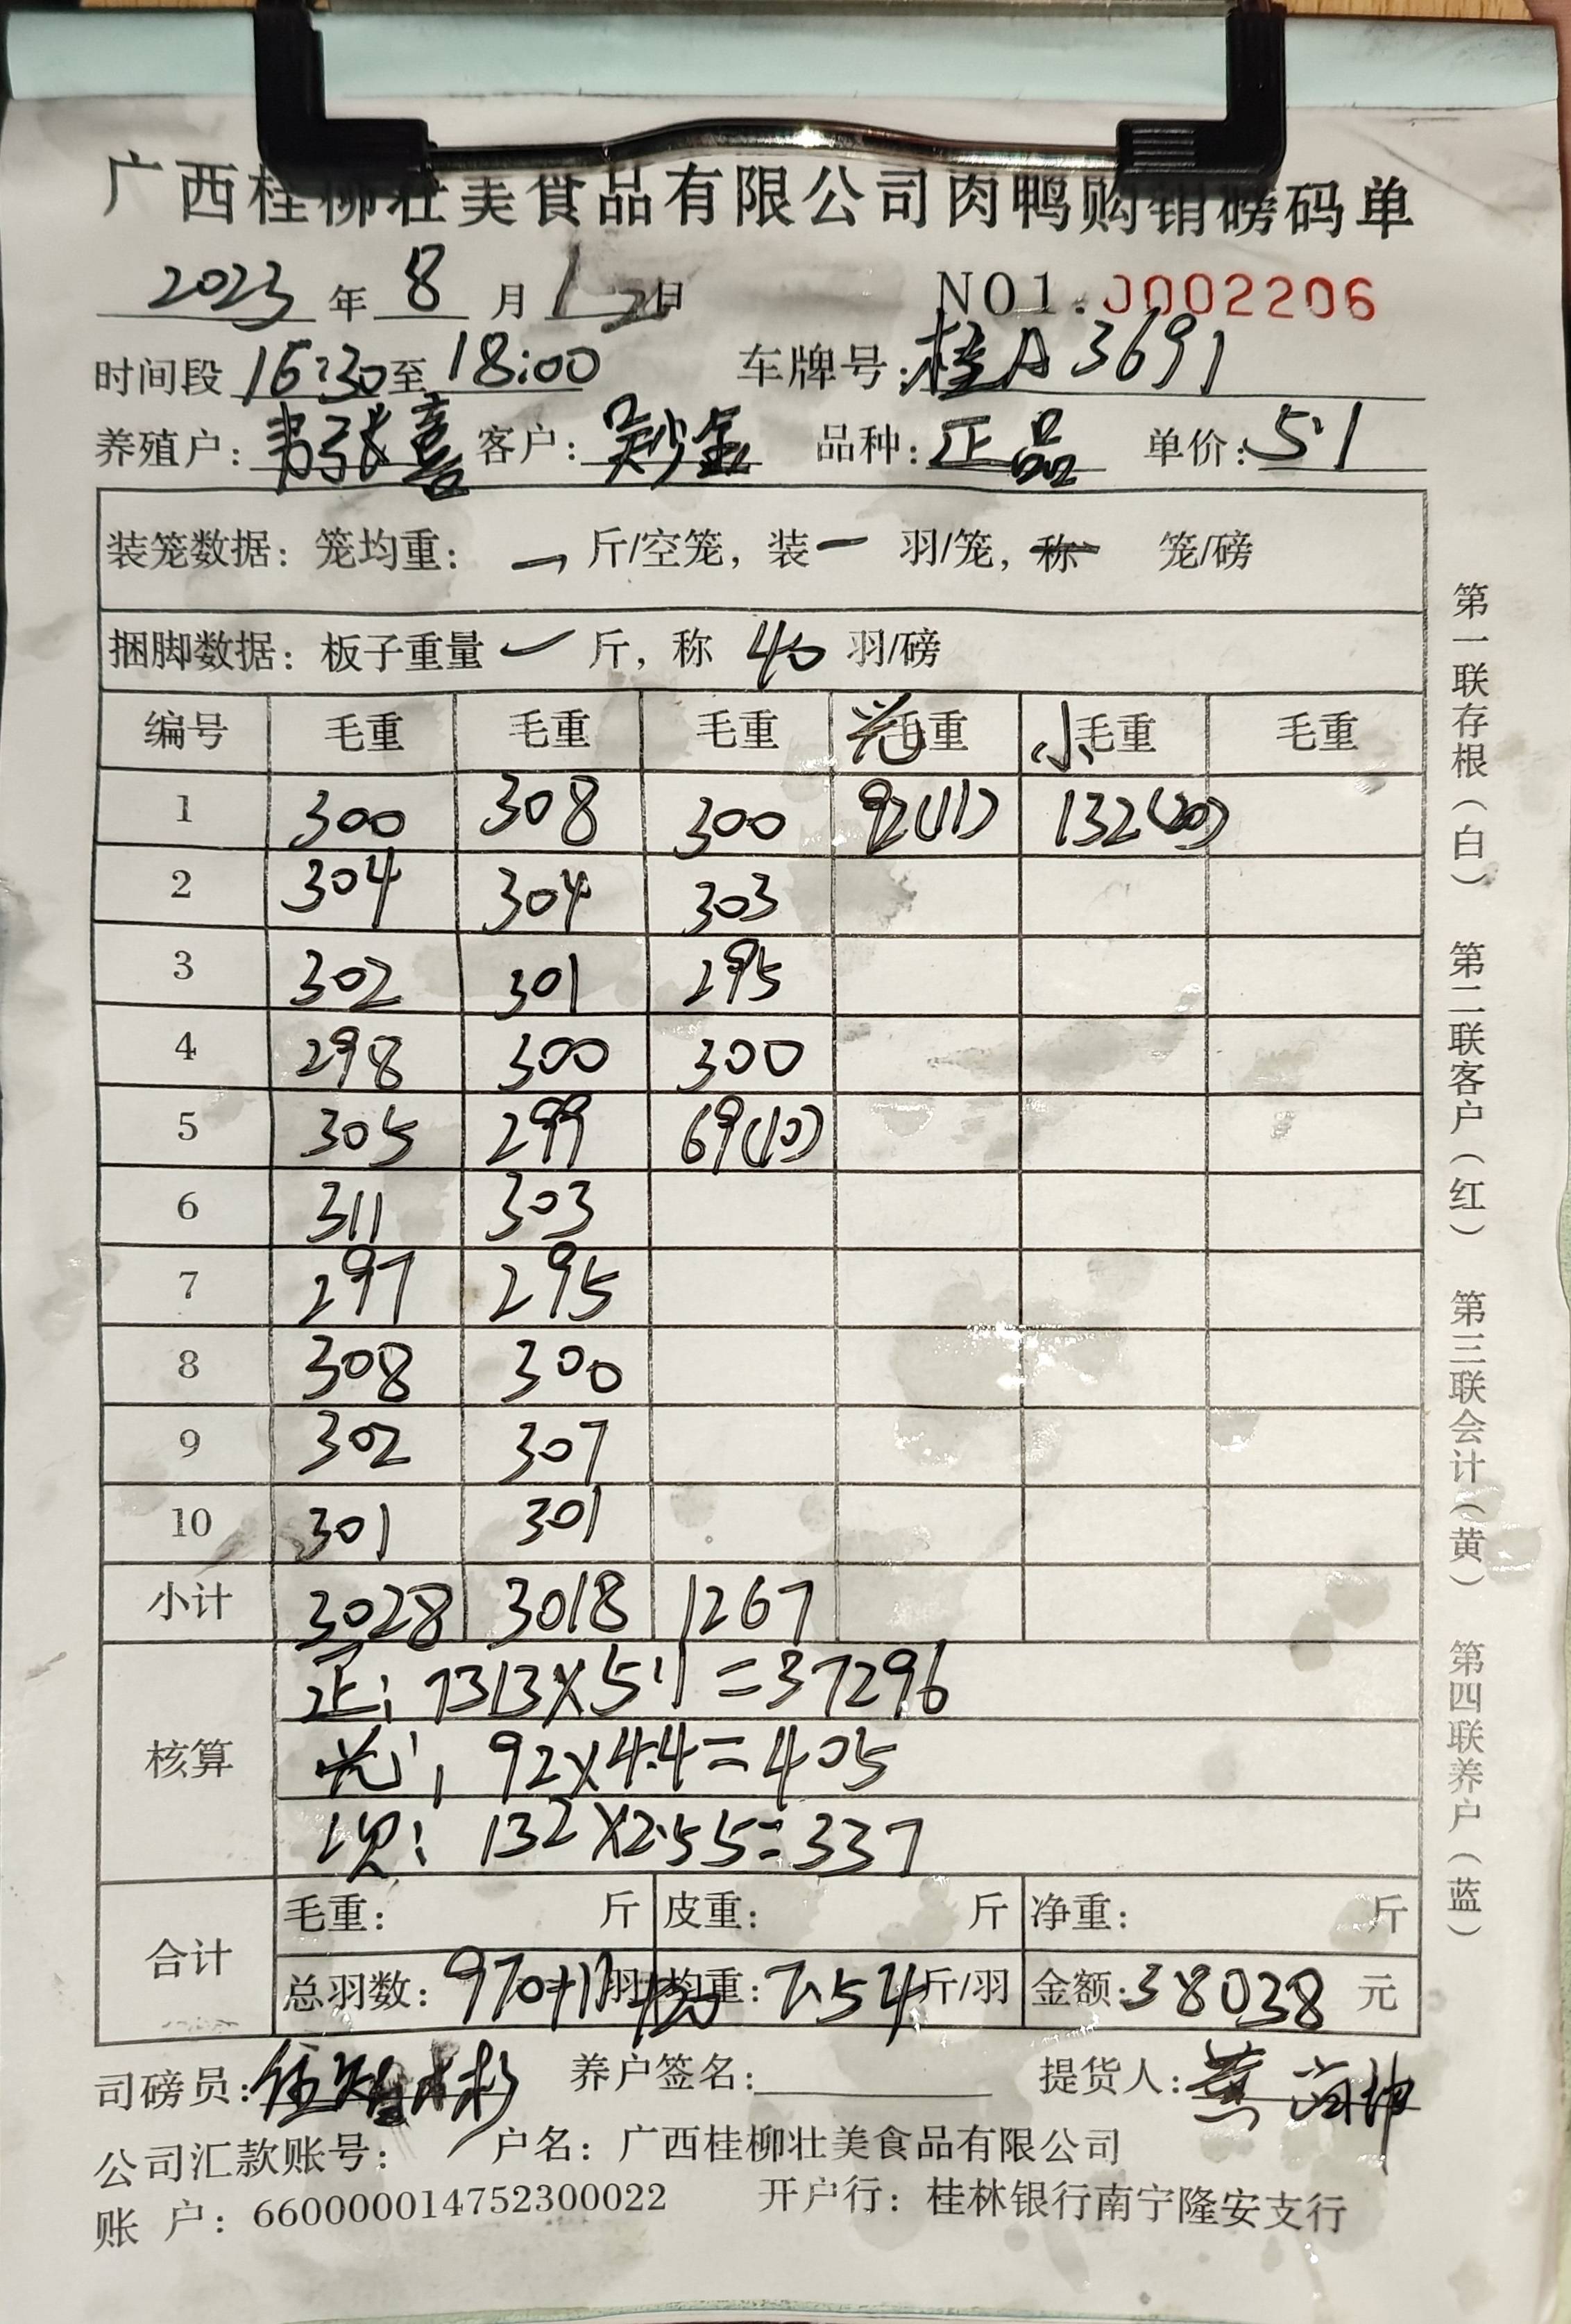 广西桂柳壮美食品有限公司肉鸭购销磅码单
2023 年 8 月 12日 NO1.0002206
时间段 16:30至 18:00 车牌号:桂A3691
养殖户: 喜 客户: 品种: 正品 单价: 5.1
装笼数据: 笼均重: 一 斤/空笼, 装一 羽/笼, 称 笼/磅
捆脚数据: 板子重量 一 斤, 称 40 羽/磅
编号 毛重 毛重 毛重 毛重 小毛重 毛重
1 300 308 300 92(11) 132(20)
2 304 304 303
3 302 301 295
4 298 300 300
5 305 299 69(10)
6 311 303
7 297 295
8 308 300
9 302 307
10 301 301
小计 3028 3018 1267
核算
正: 7313×5.1=37296
92×4.4=405
次: 132×2.55=337
合计
毛重: 斤 皮重: 斤 净重: 斤
总羽数: 970+11 羽 +20 均重: 7.54 斤/羽 金额: 38038 元
司磅员: 彬 养户签名: 提货人:
公司汇款账号: 户名: 广西桂柳壮美食品有限公司
账 户: 660000014752300022 开户行: 桂林银行南宁隆安支行
第一联存根(白) 第二联客户(红) 第三联会计(黄) 第四联养户(蓝)